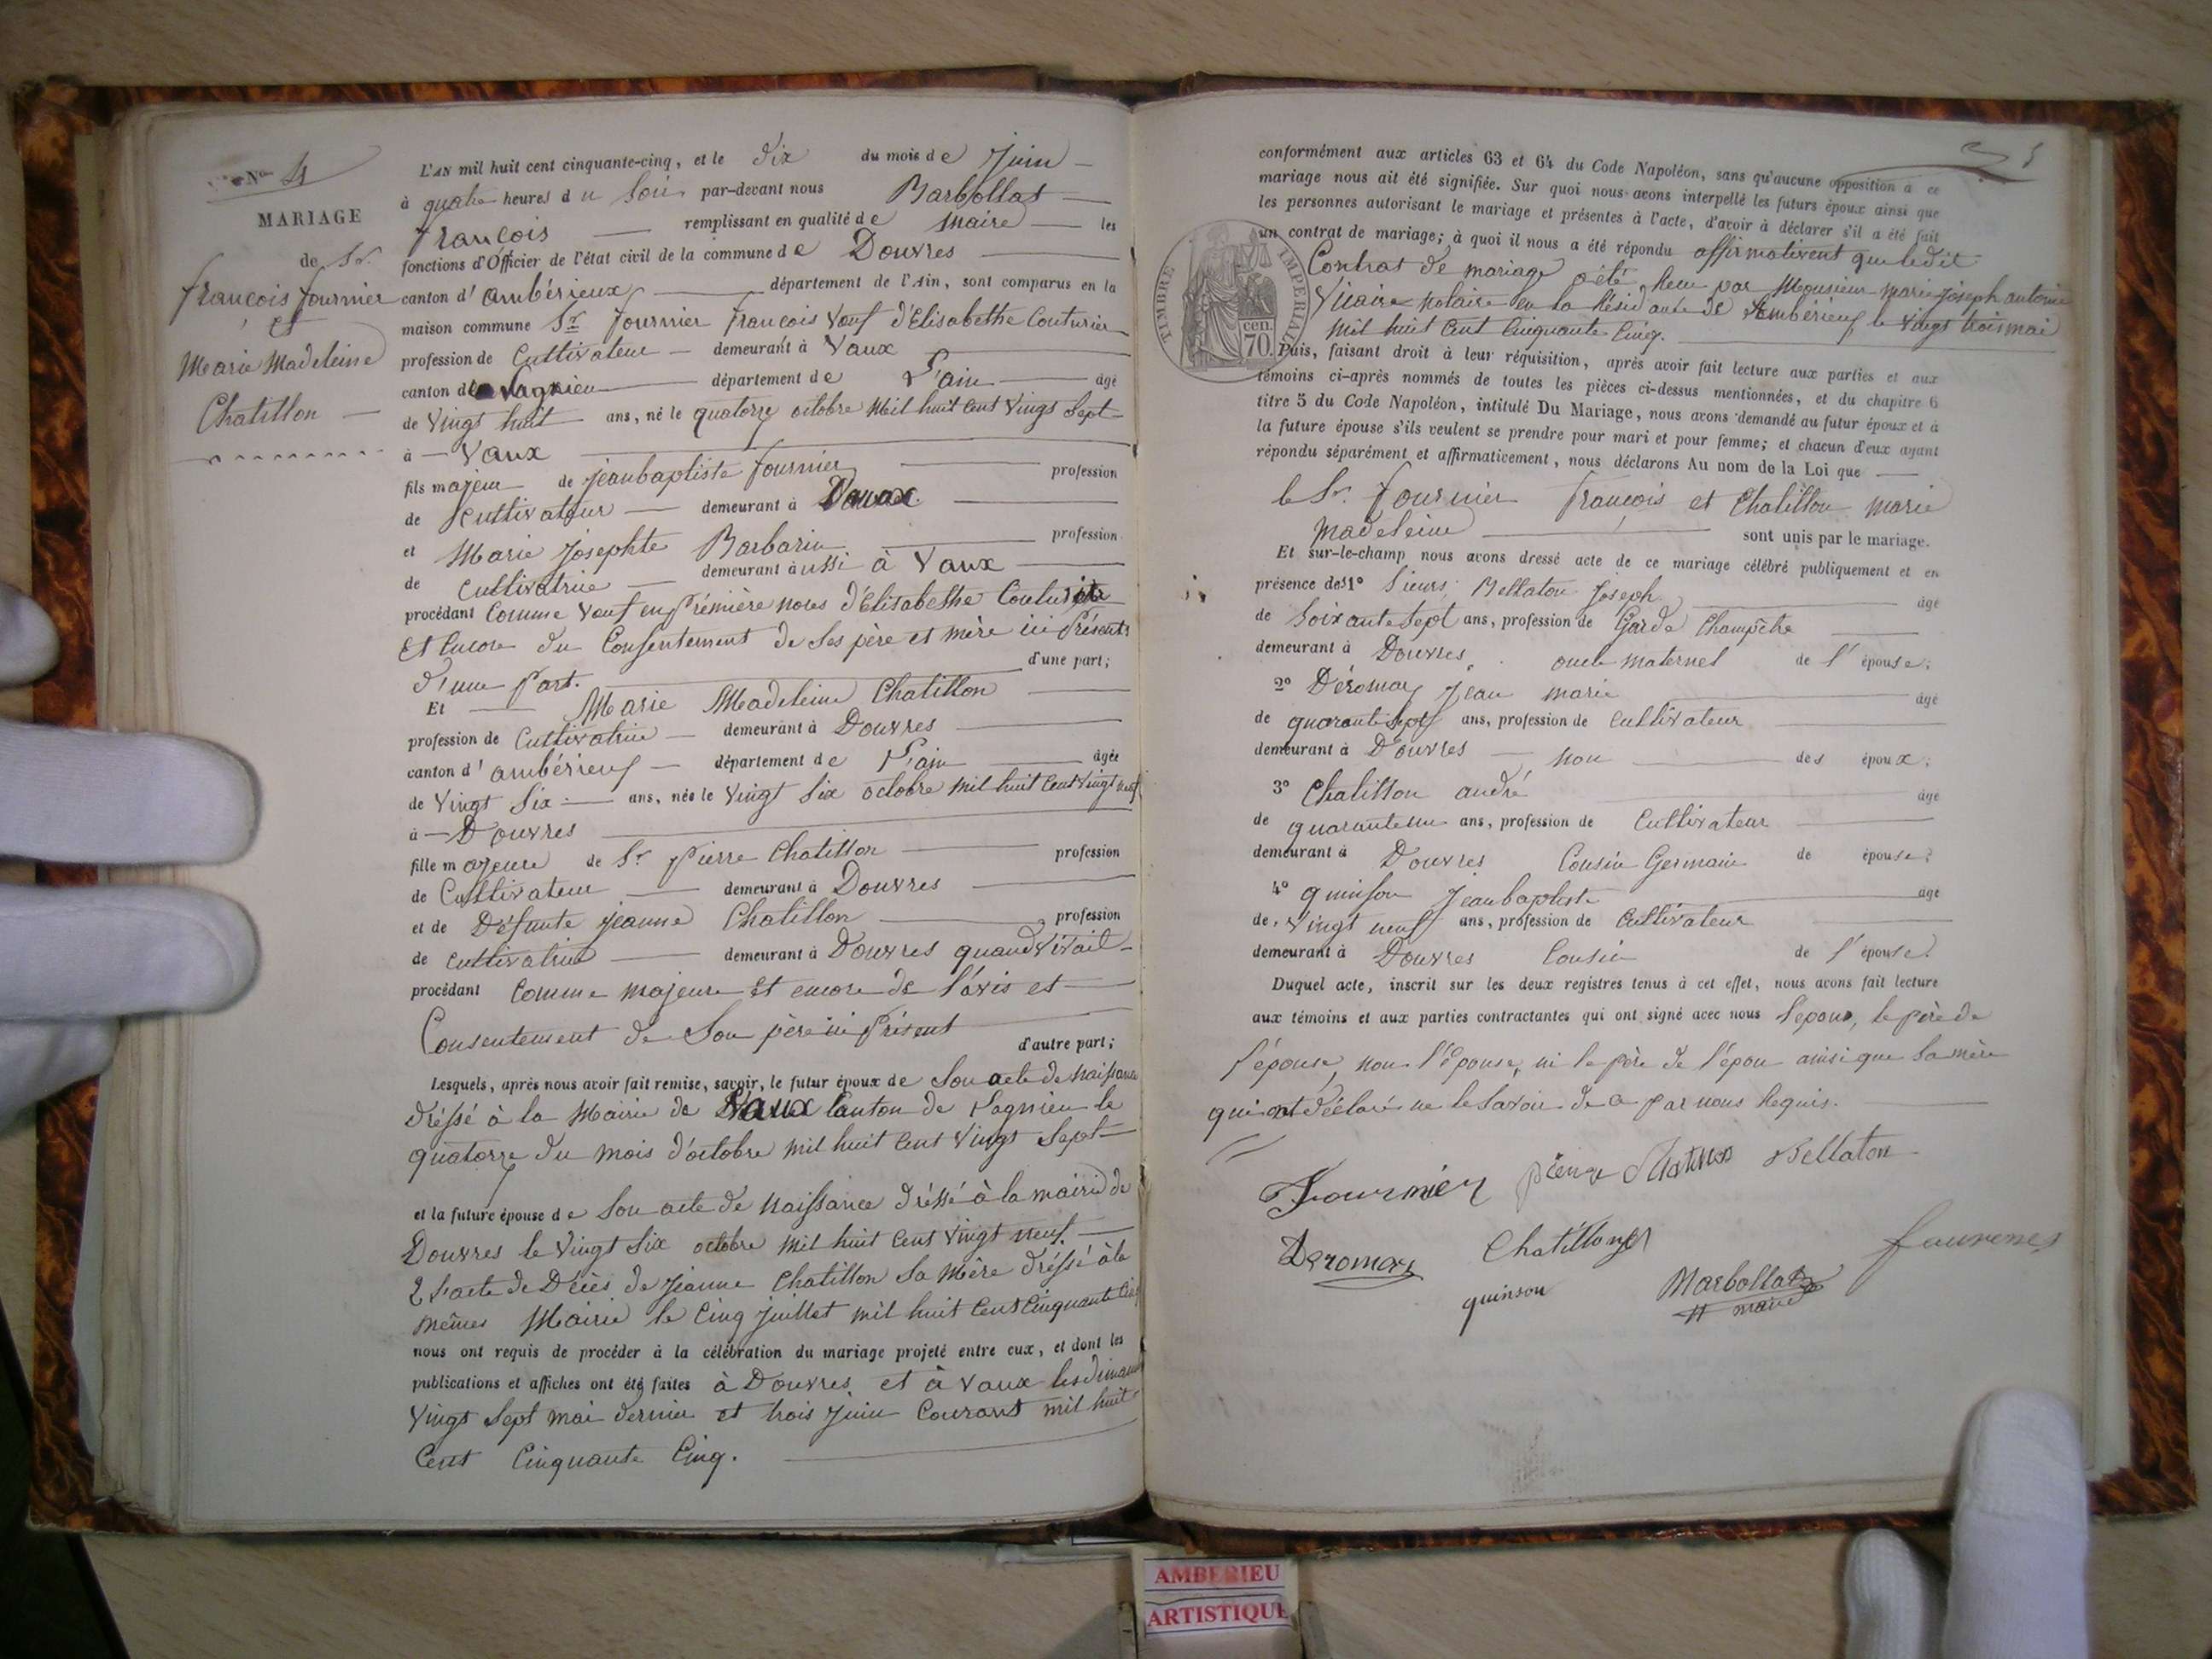 N° 4
MARIAGE
de Sr.
François fournier
et
Marie Madeleine
Chatillon
L'AN mil huit cent cinquante-cinq, et le dix du mois de Juin
à quatre heures du Soir par-devant nous Barbollat
François remplissant en qualité de Maire les
fonctions d'Officier de l'état civil de la commune de Douvres
canton d'ambérieux département de l'Ain, sont comparus en la
maison commune Sr fournier François Veuf d'Elisabethe Couturier
profession de Cultivateur demeurant à Vaux
canton de Lagnieu département de L'ain âgé
de Vingt huit ans, né le quatorze octobre Mil huit cent Vingt Sept
à Vaux
fils majeur de Jeanbaptiste fournier profession
de Cultivateur demeurant à Vaux
et Marie Josephte Barbarin profession
de Cultivatrice demeurant aussi à Vaux
procédant Comme Veuf en Prémière noces d'Elisabethe Couturier
et Encore du Consentement de Ses père et mère ici Présents
d'une Part. d'une part;
Et Marie Madeleine Chatillon
profession de Cultivatrice demeurant à Douvres
canton d'ambérieux département de L'ain âgée
de Vingt Six ans, née le Vingt Six octobre mil huit cent Vingt neuf
à Douvres
fille majeure de Sr Pierre Chatillon profession
de Cultivateur demeurant à Douvres
et de Défunte Jeanne Chatillon profession
de cultivatrice demeurant à Douvres quand Vivait
procédant Comme majeure et encore de l'avis et
Consentement de Son père ici Présent
d'autre part;
Lesquels, après nous avoir fait remise, savoir, le futur époux de Son acte de Naissance
dréssé à la Mairie de Vaux Canton de Lagnieu le
quatorze du mois d'octobre mil huit cent Vingt Sept
et la future épouse de Son acte de Naissance dréssé à la mairie de
Douvres le Vingt Six octobre mil huit cent Vingt neuf.
& L'acte de Décès de Jeanne Chatillon Sa Mère dréssé à la
mêmes Mairie le Cinq Juillet mil huit Cent Cinquante
nous ont requis de procéder à la célébration du mariage projeté entre eux, et dont les
publications et affiches ont été faites à Douvres et à Vaux les
Vingt Sept mai dernier et trois Juin Courant mil huit
Cent Cinquante Cinq.
5
conformément aux articles 63 et 64 du Code Napoléon, sans qu'aucune opposition à ce
mariage nous ait été signifiée. Sur quoi nous avons interpellé les futurs époux ainsi que
les personnes autorisant le mariage et présentes à l'acte, d'avoir à déclarer s'il a été fait
un contrat de mariage; à quoi il nous a été répondu affirmativent que ledit
Contrat de mariage a été Recu par Monsieur marie Joseph antoine
Vicaire Notaire en la Résidante de Ambérieux le Vingt trois mai
mil huit cent Cinquante Cinq.
TIMBRE IMPERIAL
cen.
70.
Puis, faisant droit à leur réquisition, après avoir fait lecture aux parties et aux
témoins ci-après nommés de toutes les pièces ci-dessus mentionnées, et du chapitre 6
titre 5 du Code Napoléon, intitulé Du Mariage, nous avons demandé au futur époux et à
la future épouse s'ils veulent se prendre pour mari et pour femme; et chacun d'eux ayant
répondu séparément et affirmativement, nous déclarons Au nom de la Loi que
le Sr. fournier François et Chatillon marie
Madeleine sont unis par le mariage.
Et sur-le-champ nous avons dressé acte de ce mariage célébré publiquement et en
présence des 1° Sieurs; Bellaton Joseph âgé
de Soixante Sept ans, profession de Garde Champêtre
demeurant à Douvres oncle maternel de l'épouse;
2° Déromas Jean marie âgé
de quarante Sept ans, profession de cultivateur
demeurant à Douvres non des époux;
3° Chatillon andré âgé
de quarante un ans, profession de Cultivateur
demeurant à Douvres Cousin Germain de épouse;
4° quinson Jeanbaptiste âgé
de Vingt neuf ans, profession de Cultivateur
demeurant à Douvres Cousin de l'épouse.
Duquel acte, inscrit sur les deux registres tenus à cet effet, nous avons fait lecture
aux témoins et aux parties contractantes qui ont signé avec nous l'epoux, le père de
l'épouse, non l'épouse, ni le père de l'époux ainsi que Sa mère
qui ont déclaré ne le Savoir de ce par nous Requis.
Fournier pierre Chatillon Bellaton
Deromas Chatillon
quinson Barbollat
maire
AMBERIEU
ARTISTIQUE